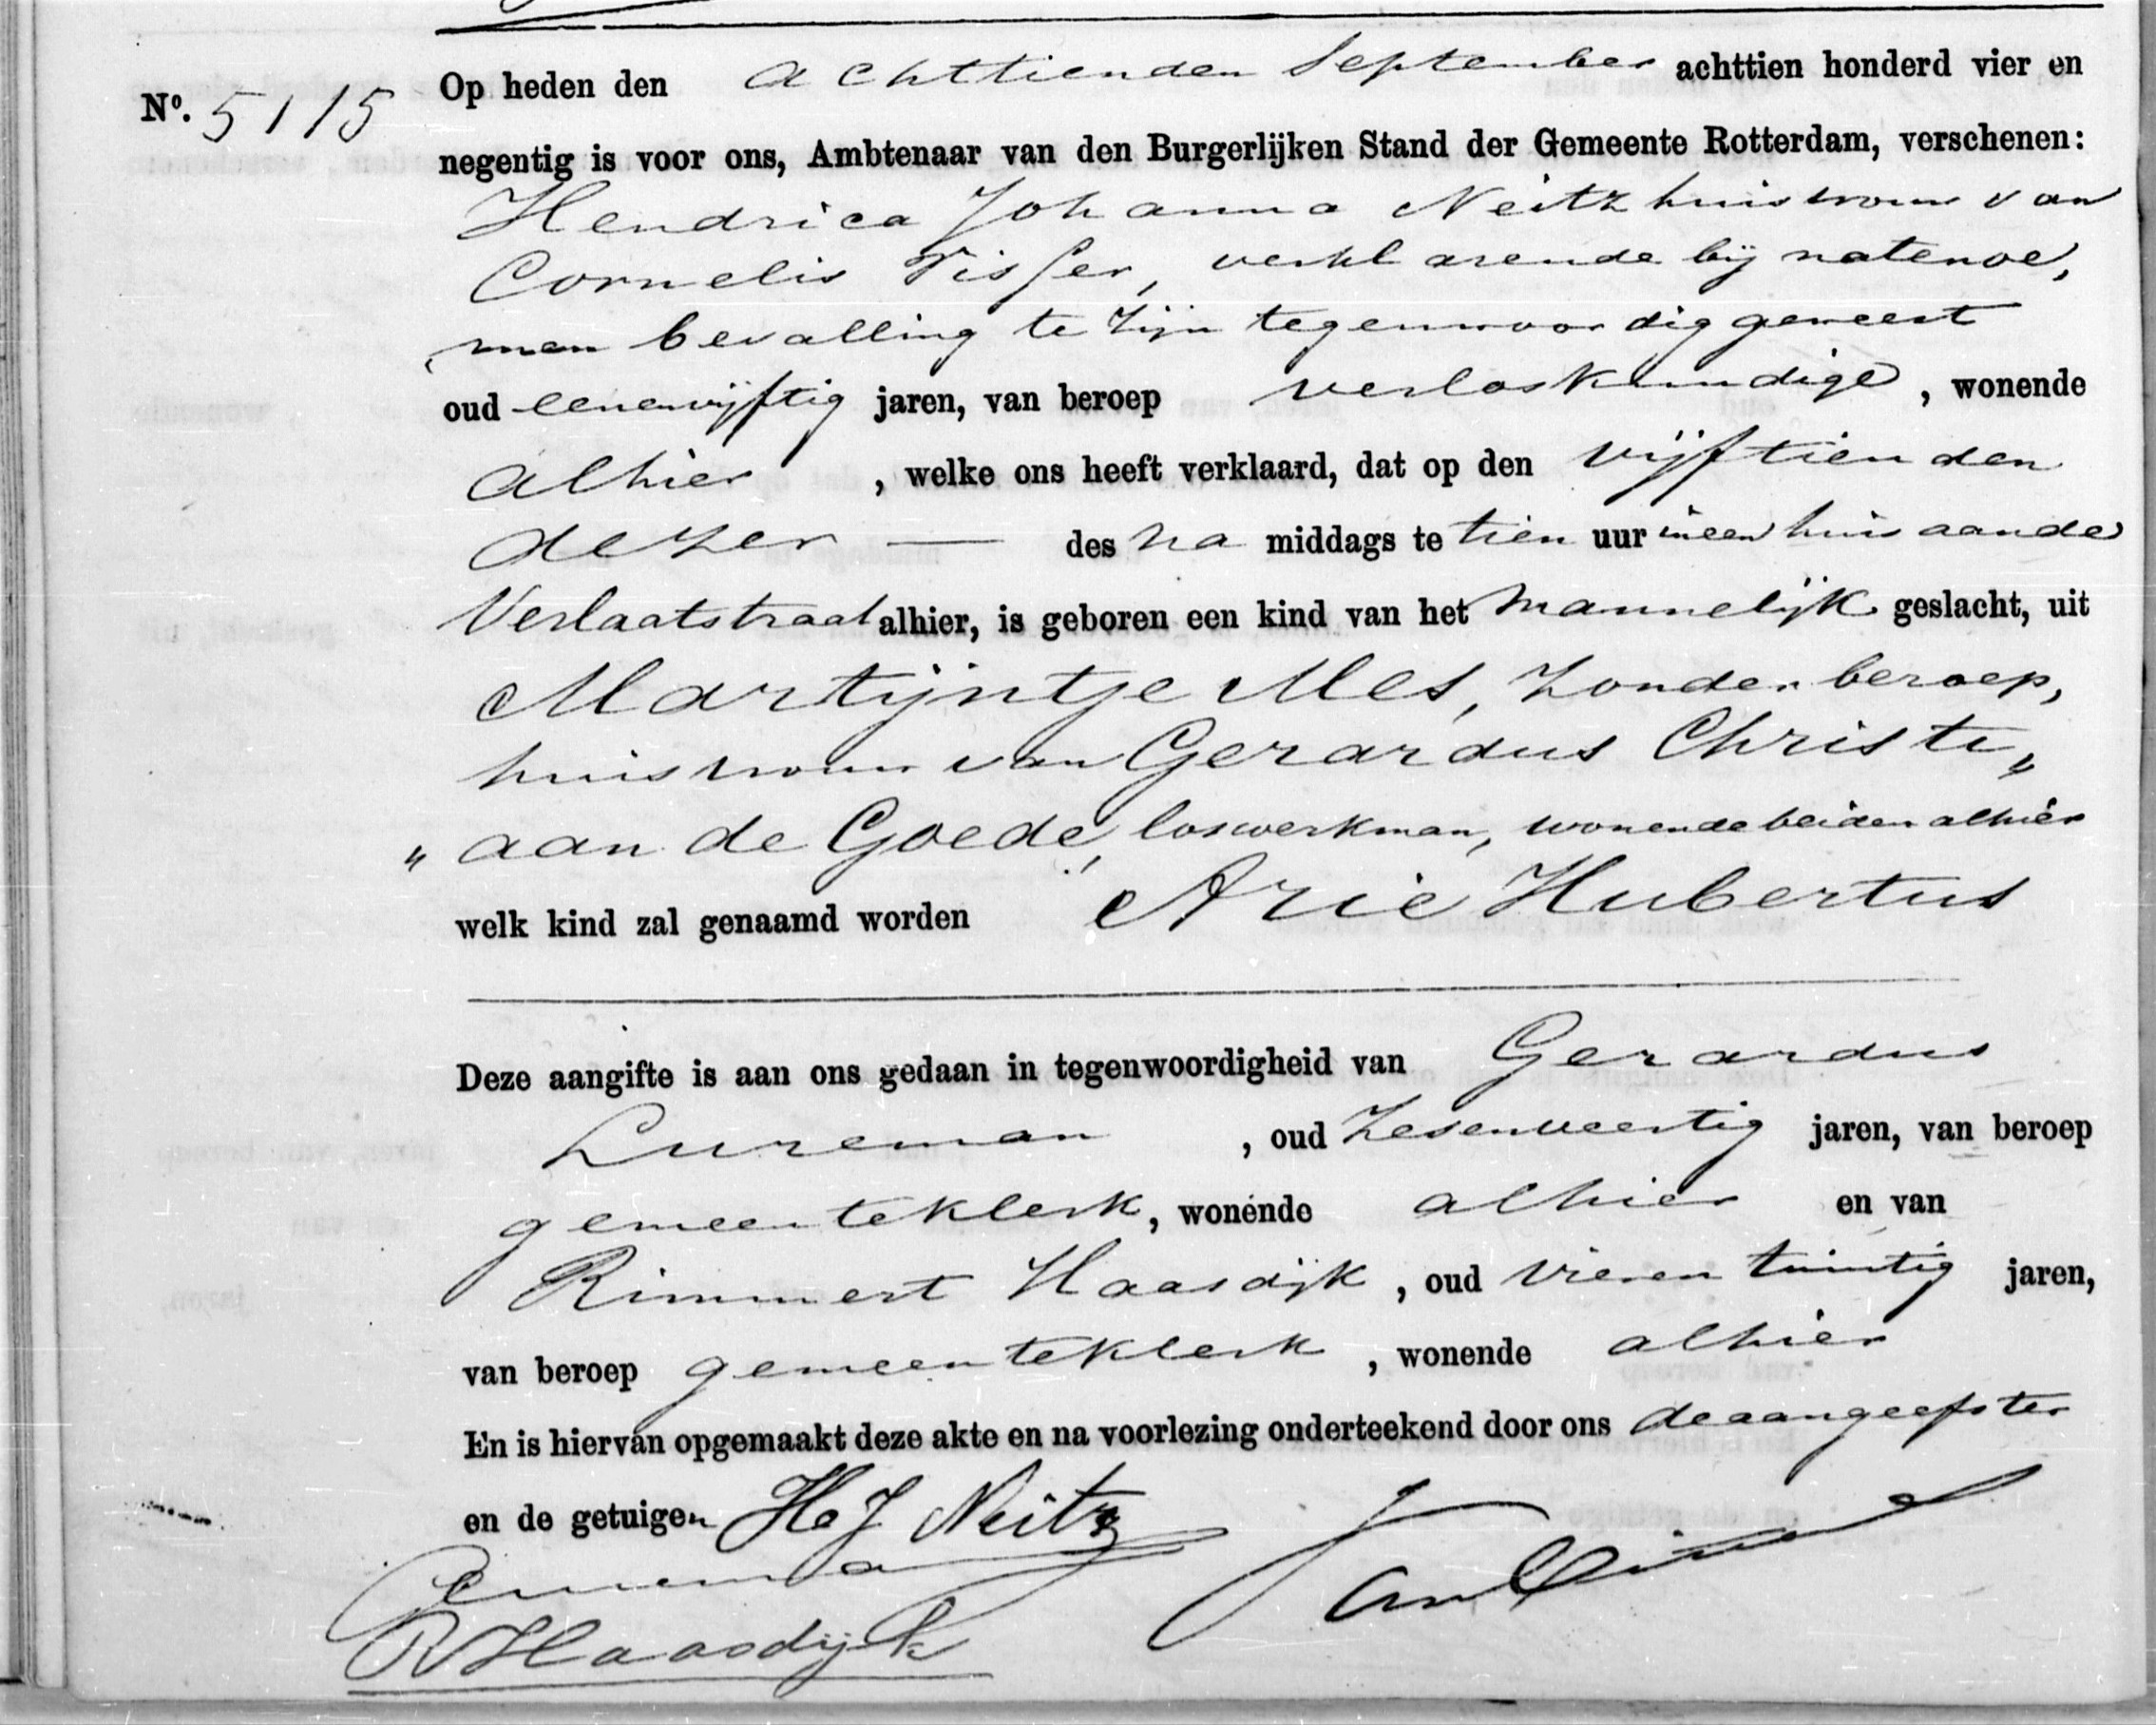 Op heden den achttienden September achttien honderd vier en
No. 5115
negentig is voor ons, Ambtenaar van den Burgerlijken Stand der Gemeente Rotterdam, verschenen:
Hendrica Johanna Neitz huisvrouw van
Cornelis Visser, verklarende bij natenoe„
„men bevalling te zijn tegenwoordig geweest
oud eenenvijftig jaren, van beroep verloskundige, wonende
alhier, welke ons heeft verklaard, dat op den vijftienden
dezer — des na middags te tien uur in een huis aan de
Verlaatstraat alhier, is geboren een kind van het mannelijk geslacht, uit
Martijntje Mes, zonder beroep,
huisvrouw van Gerardus Christi„
„aan de Goede, loswerkman, wonende beiden alhier
welk kind zal genaamd worden Arie Hubertus
Deze aangifte is aan ons gedaan in tegenwoordigheid van Gerardus
Lureman, oud zesenveertig jaren, van beroep
gemeenteklerk, wonende alhier en van
Rimmert Haasdijk, oud vierentwintig jaren,
van beroep gemeenteklerk, wonende alhier
En is hiervan opgemaakt deze akte en na voorlezing onderteekend door ons de aangeefster
en de getuigen HJ Neitz
RHaasdijk